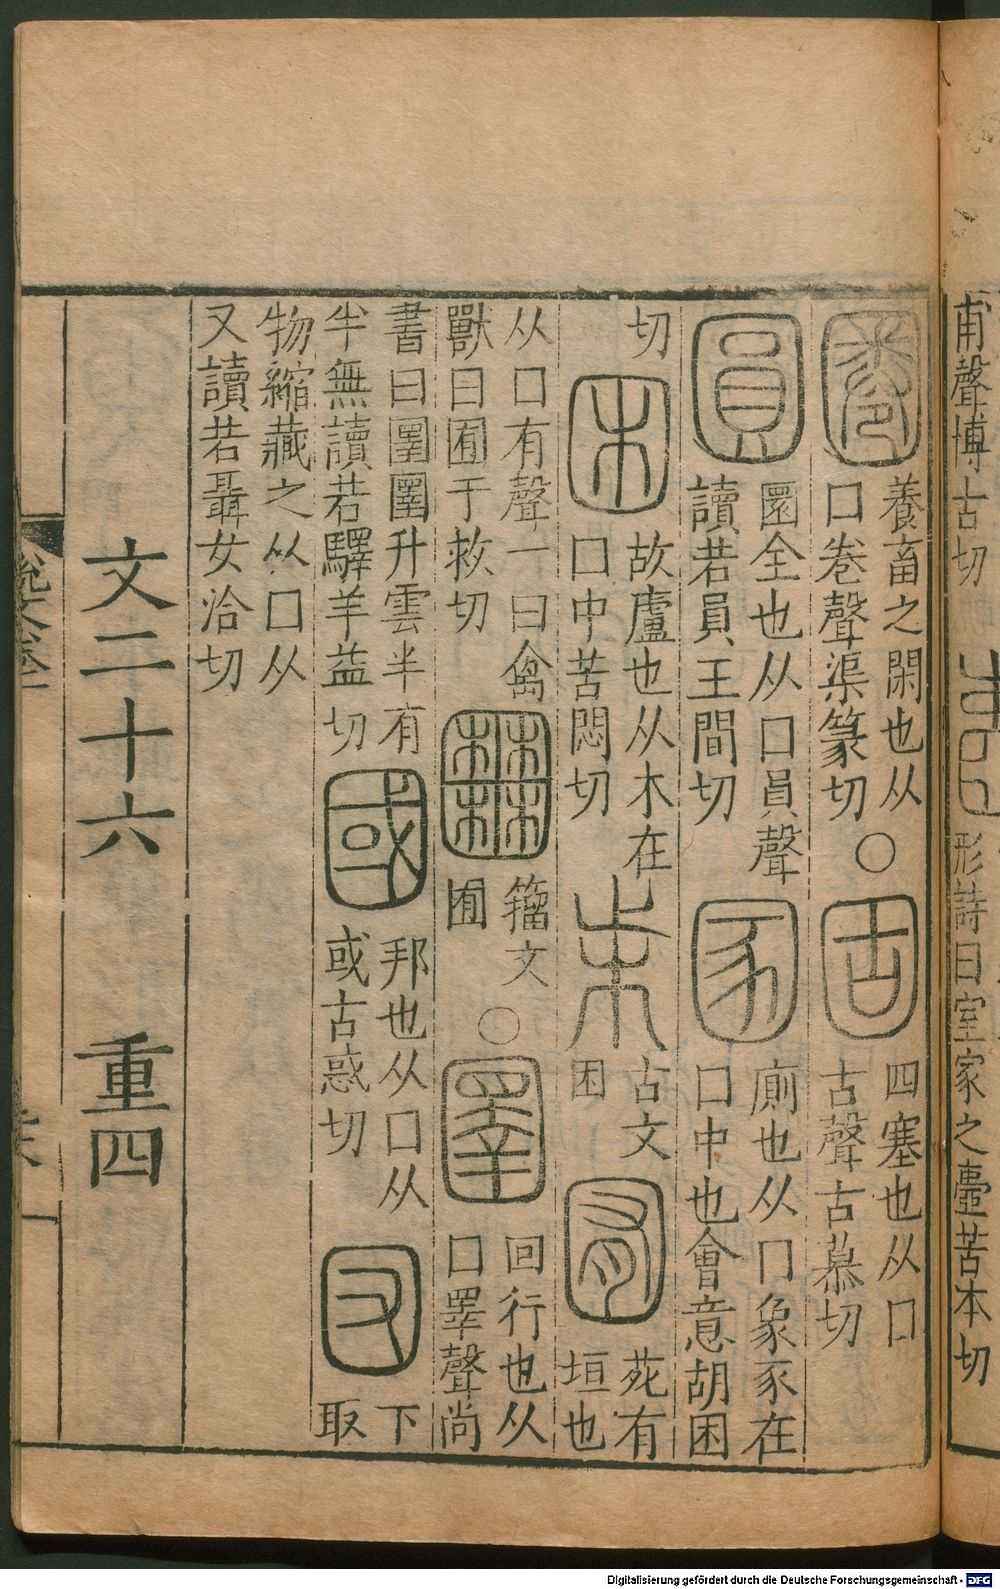 甫聲博古切
形詩曰室家之壼苦本切
圈
養畜之閑也从
囗卷聲渠篆切
○
固
四塞也从囗
古聲古慕切
圓
圜全也从囗員聲
讀若員王間切
圂
廁也从囗象豕在
囗中也會意胡困
切
困
故廬也从木在
囗中苦悶切
古文
困
囿
苑有
垣也
从囗有聲一曰禽
獸曰囿于救切
籀文
囿
○
圛
回行也从
囗睪聲尚
書曰圛圛升雲半有
半無讀若驛羊益切
國
邦也从囗从
或古惑切
㘝
下
取
物縮藏之从囗从
又讀若聶女洽切
文二十六 重四